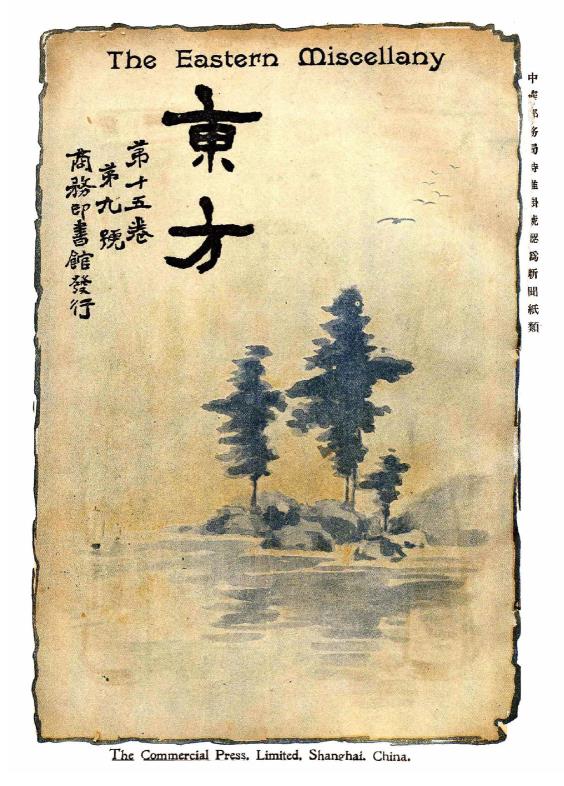 The Eastern Miscellany
中華郵務局特准掛號認爲新聞紙類
東方
第十五卷
第九號
商務印書館發行
The Commercial Press, Limited, Shanghai, China.